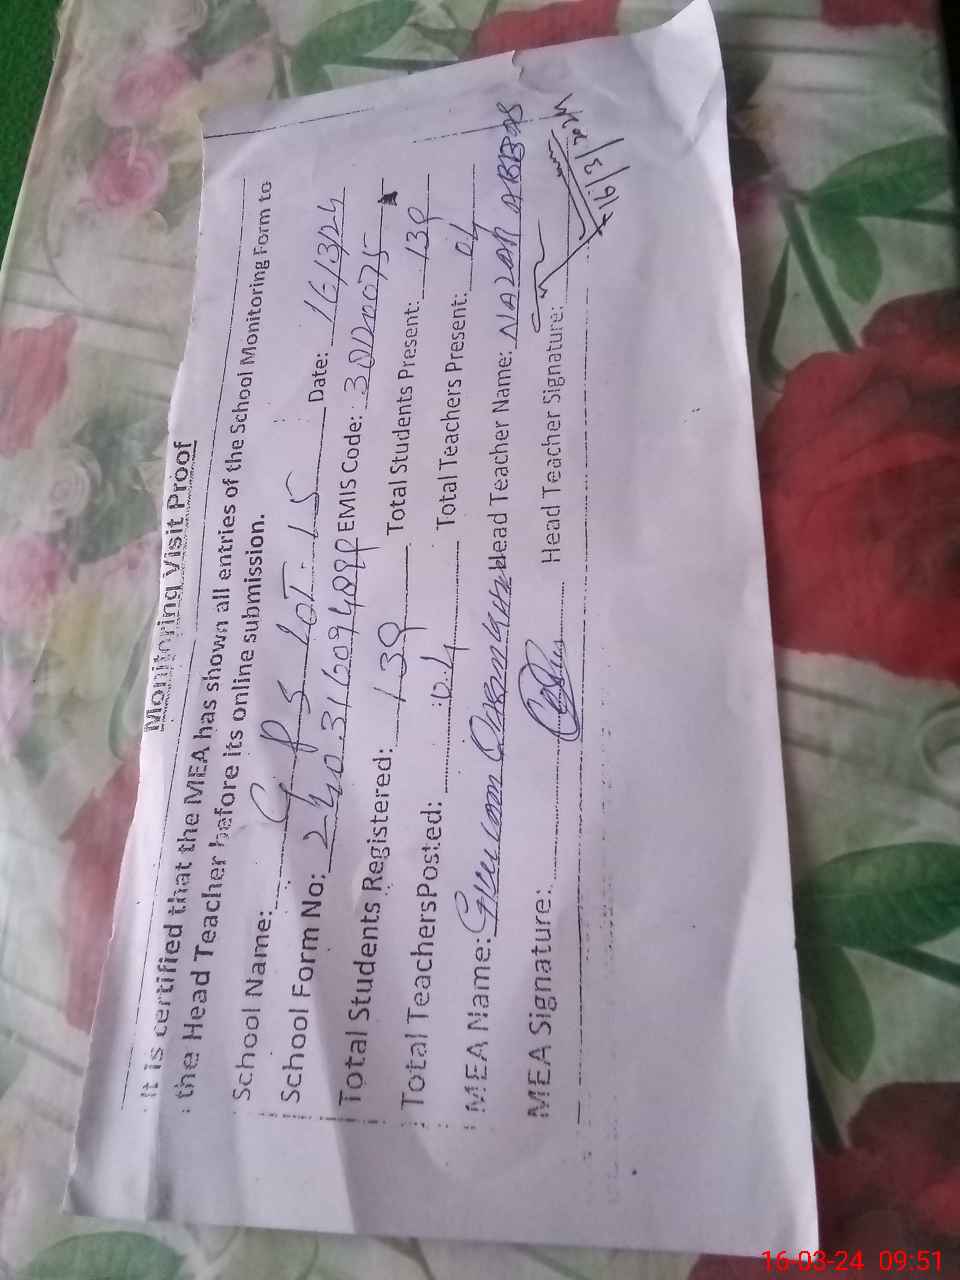 Monitoring Visit Proof
It is certified that the MEA has shown all entries of the School Monitoring Form to
the Head Teacher before its online submission.
School Name: GPS LOT. 15 Date: 16/3/24
School Form No: EMIS Code:
Total Students Registered: 139 Total Students Present: 139
Total Teachers Posted: 04 Total Teachers Present: 04
MEA Name: Head Teacher Name: ABBAS
MEA Signature: Head Teacher Signature:
16/3/24
16-03-24 09:51